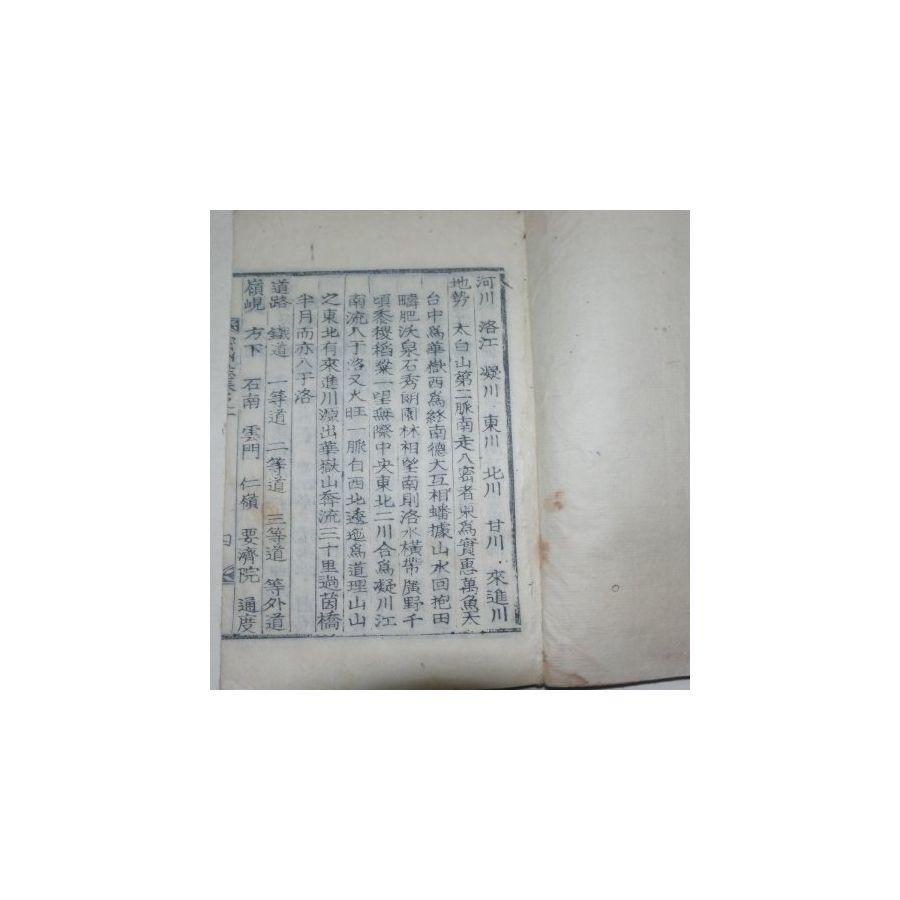 河川 洛江 凝川 東川 北川 甘川 來進川
地勢 太白山第二脈南走入密者東為實惠萬魚天
台中為華嶽西為終南德大互相蟠據山水回抱田
疇肥沃泉石秀明園林相望南則洛水橫帶廣野千
頃黍稷稻粱一望無際中央東北二川合為凝川江
南流入于洛又火旺一脈自西北透迤為道理山山
之東北有來進川源出華嶽山奔流三十里過茵橋
半月而亦入于洛
道路 鐵道 一等道 二等道 三等道 等外道
嶺峴 方下 石南 雲門 仁嶺 要濟院 通度
四